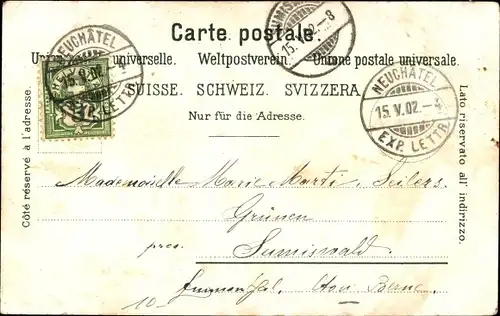 Carte postale.
Union postale universelle. Weltpostverein. Unione postale universale.
SUISSE. SCHWEIZ. SVIZZERA.
Nur für die Adresse.
Côté réservé à l'adresse.
Lato riservato all' indirizzo.
NEUCHÂTEL
EXP. LETTR.
SUMISWALD
15. V. 02. - 8
NEUCHÂTEL
15. V. 02. - 4
EXP. LETTR.
Mademoiselle Marie Marti, Seilers
Grünen
près. Sumiswald
Emmenthal, Cton Berne.
10-